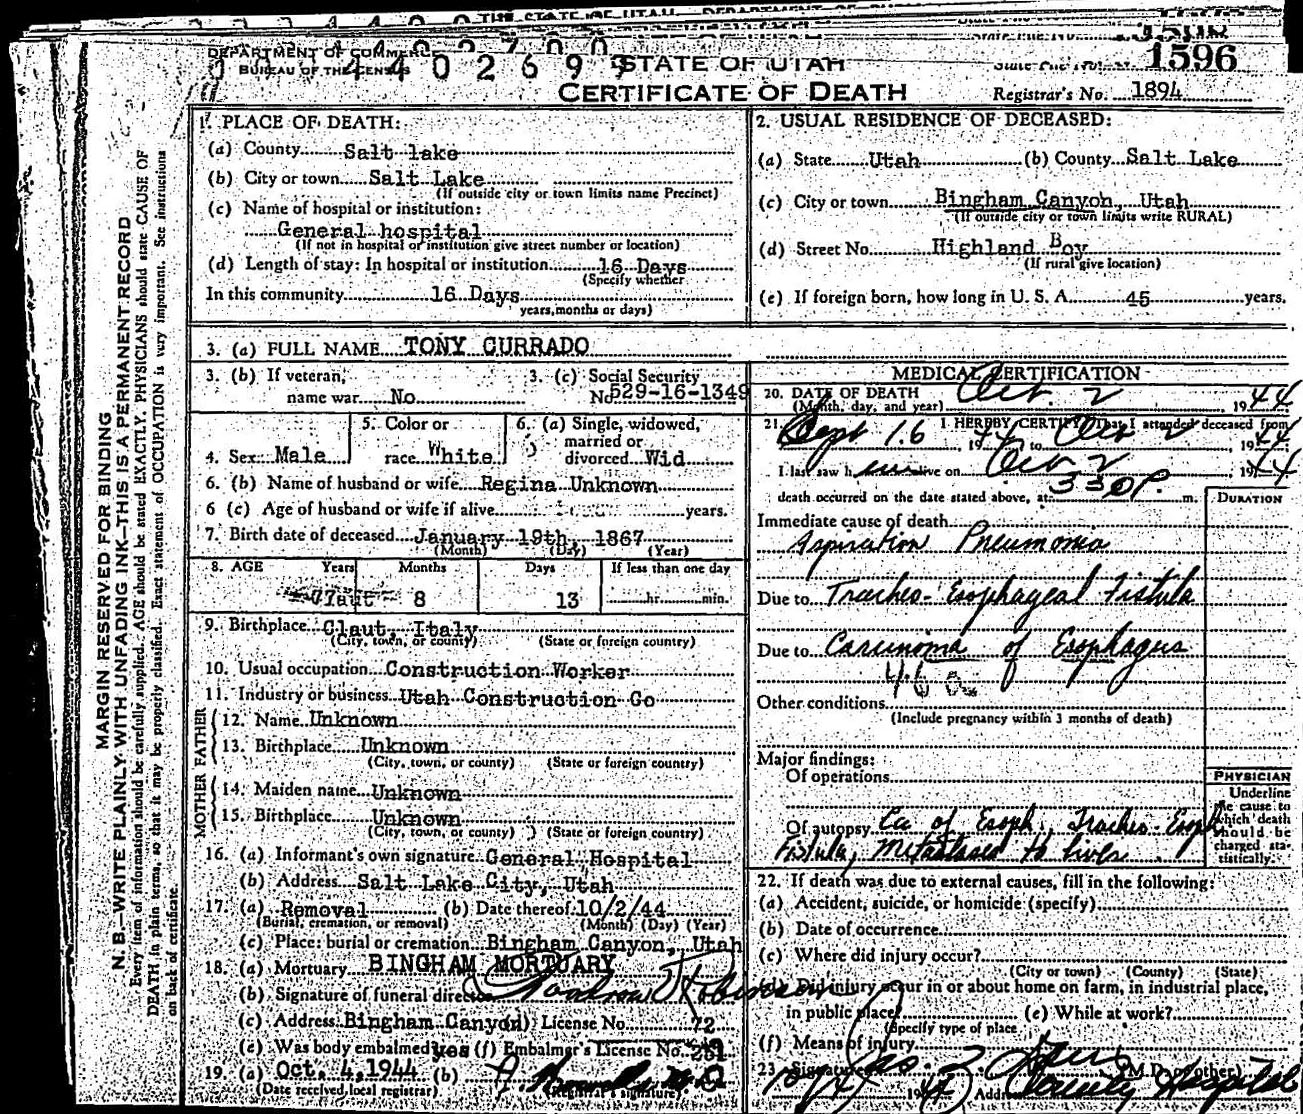 THE STATE OF UTAH - DEPARTMENT OF
DEPARTMENT OF COMMERCE
BUREAU OF THE CENSUS
STATE OF UTAH
CERTIFICATE OF DEATH
State File No. 1596
Registrar's No. 1894
MARGIN RESERVED FOR BINDING
N. B.—WRITE PLAINLY WITH UNFADING INK—THIS IS A PERMANENT RECORD
Every item of information should be carefully supplied. AGE should be stated EXACTLY. PHYSICIANS should state CAUSE OF
DEATH in plain terms, so that it may be properly classified. Exact statement of OCCUPATION is very important. See instructions
on back of certificate.
1. PLACE OF DEATH:
(a) County Salt lake
(b) City or town Salt Lake
(If outside city or town limits name Precinct)
(c) Name of hospital or institution:
General hospital
(If not in hospital or institution give street number or location)
(d) Length of stay: In hospital or institution 16 Days
(Specify whether
In this community 16 Days
years, months or days)
2. USUAL RESIDENCE OF DECEASED:
(a) State Utah (b) County Salt Lake
(c) City or town Bingham Canyon, Utah
(If outside city or town limits write RURAL)
(d) Street No. Highland Boy
(If rural give location)
(e) If foreign born, how long in U. S. A. 45 years.
3. (a) FULL NAME TONY CURRADO
3. (b) If veteran, name war No
3. (c) Social Security No. 529-16-1349
4. Sex Male
5. Color or race White
6. (a) Single, widowed, married or divorced Wid
6. (b) Name of husband or wife Regina Unknown
6 (c) Age of husband or wife if alive years.
7. Birth date of deceased January 19th, 1867
(Month) (Day) (Year)
8. AGE Years Months Days If less than one day
8 13 hr. min.
9. Birthplace Claut, Italy
(City, town, or county) (State or foreign country)
10. Usual occupation Construction Worker
11. Industry or business Utah Construction Co
FATHER
12. Name Unknown
13. Birthplace Unknown
(City, town, or county) (State or foreign country)
MOTHER
14. Maiden name Unknown
15. Birthplace Unknown
(City, town, or county) (State or foreign country)
16. (a) Informant's own signature General Hospital
(b) Address Salt Lake City, Utah
17. (a) Removal (b) Date thereof 10/2/44
(Burial, cremation, or removal) (Month) (Day) (Year)
(c) Place: burial or cremation Bingham Canyon, Utah
18. (a) Mortuary BINGHAM MORTUARY
(b) Signature of funeral director
(c) Address Bingham Canyon (d) License No. 72
(e) Was body embalmed yes (f) Embalmer's License No. 251
19. (a) Oct. 4, 1944 (b)
(Date received local registrar) (Registrar's signature)
MEDICAL CERTIFICATION
20. DATE OF DEATH Oct 2 1944
(Month, day, and year)
21. I HEREBY CERTIFY, That I attended deceased from
Sept 16, 1944 to Oct 2, 1944
I last saw him alive on Oct 2 1944
death occurred on the date stated above, at 330 P. m.
DURATION
Immediate cause of death
Aspiration Pneumonia
Due to Tracheo-Esophageal Fistula
Due to Carcinoma of Esophagus
Other conditions
(Include pregnancy within 3 months of death)
Major findings:
Of operations
Of autopsy Ca of Esoph, Tracheo-Esoph
Fistula, Metastases to liver
PHYSICIAN
Underline
the cause to
which death
should be
charged sta-
tistically.
22. If death was due to external causes, fill in the following:
(a) Accident, suicide, or homicide (specify)
(b) Date of occurrence
(c) Where did injury occur?
(City or town) (County) (State)
(d) Did injury occur in or about home on farm, in industrial place,
in public place? (e) While at work?
(Specify type of place
(f) Means of injury
23. Signature (M.D. or other)
Address County Hospital